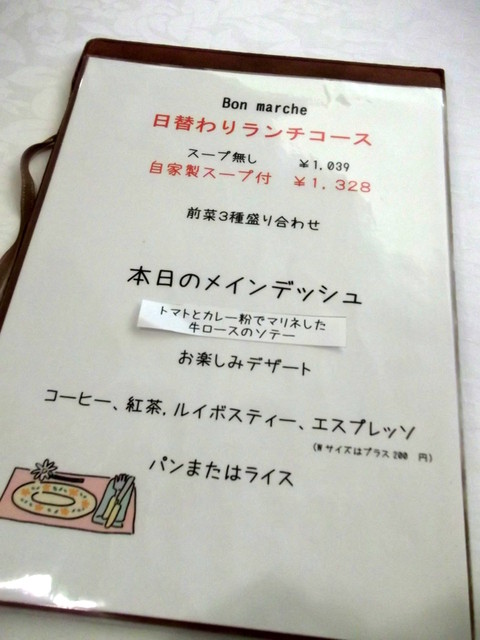 Bon marche
日替わりランチコース
スープ無し ￥1,039
自家製スープ付 ￥1,328
前菜3種盛り合わせ
本日のメインデッシュ
トマトとカレー粉でマリネした
牛ロースのソテー
お楽しみデザート
コーヒー、紅茶,ルイボスティー、エスプレッソ
(Wサイズはプラス200 円)
パンまたはライス